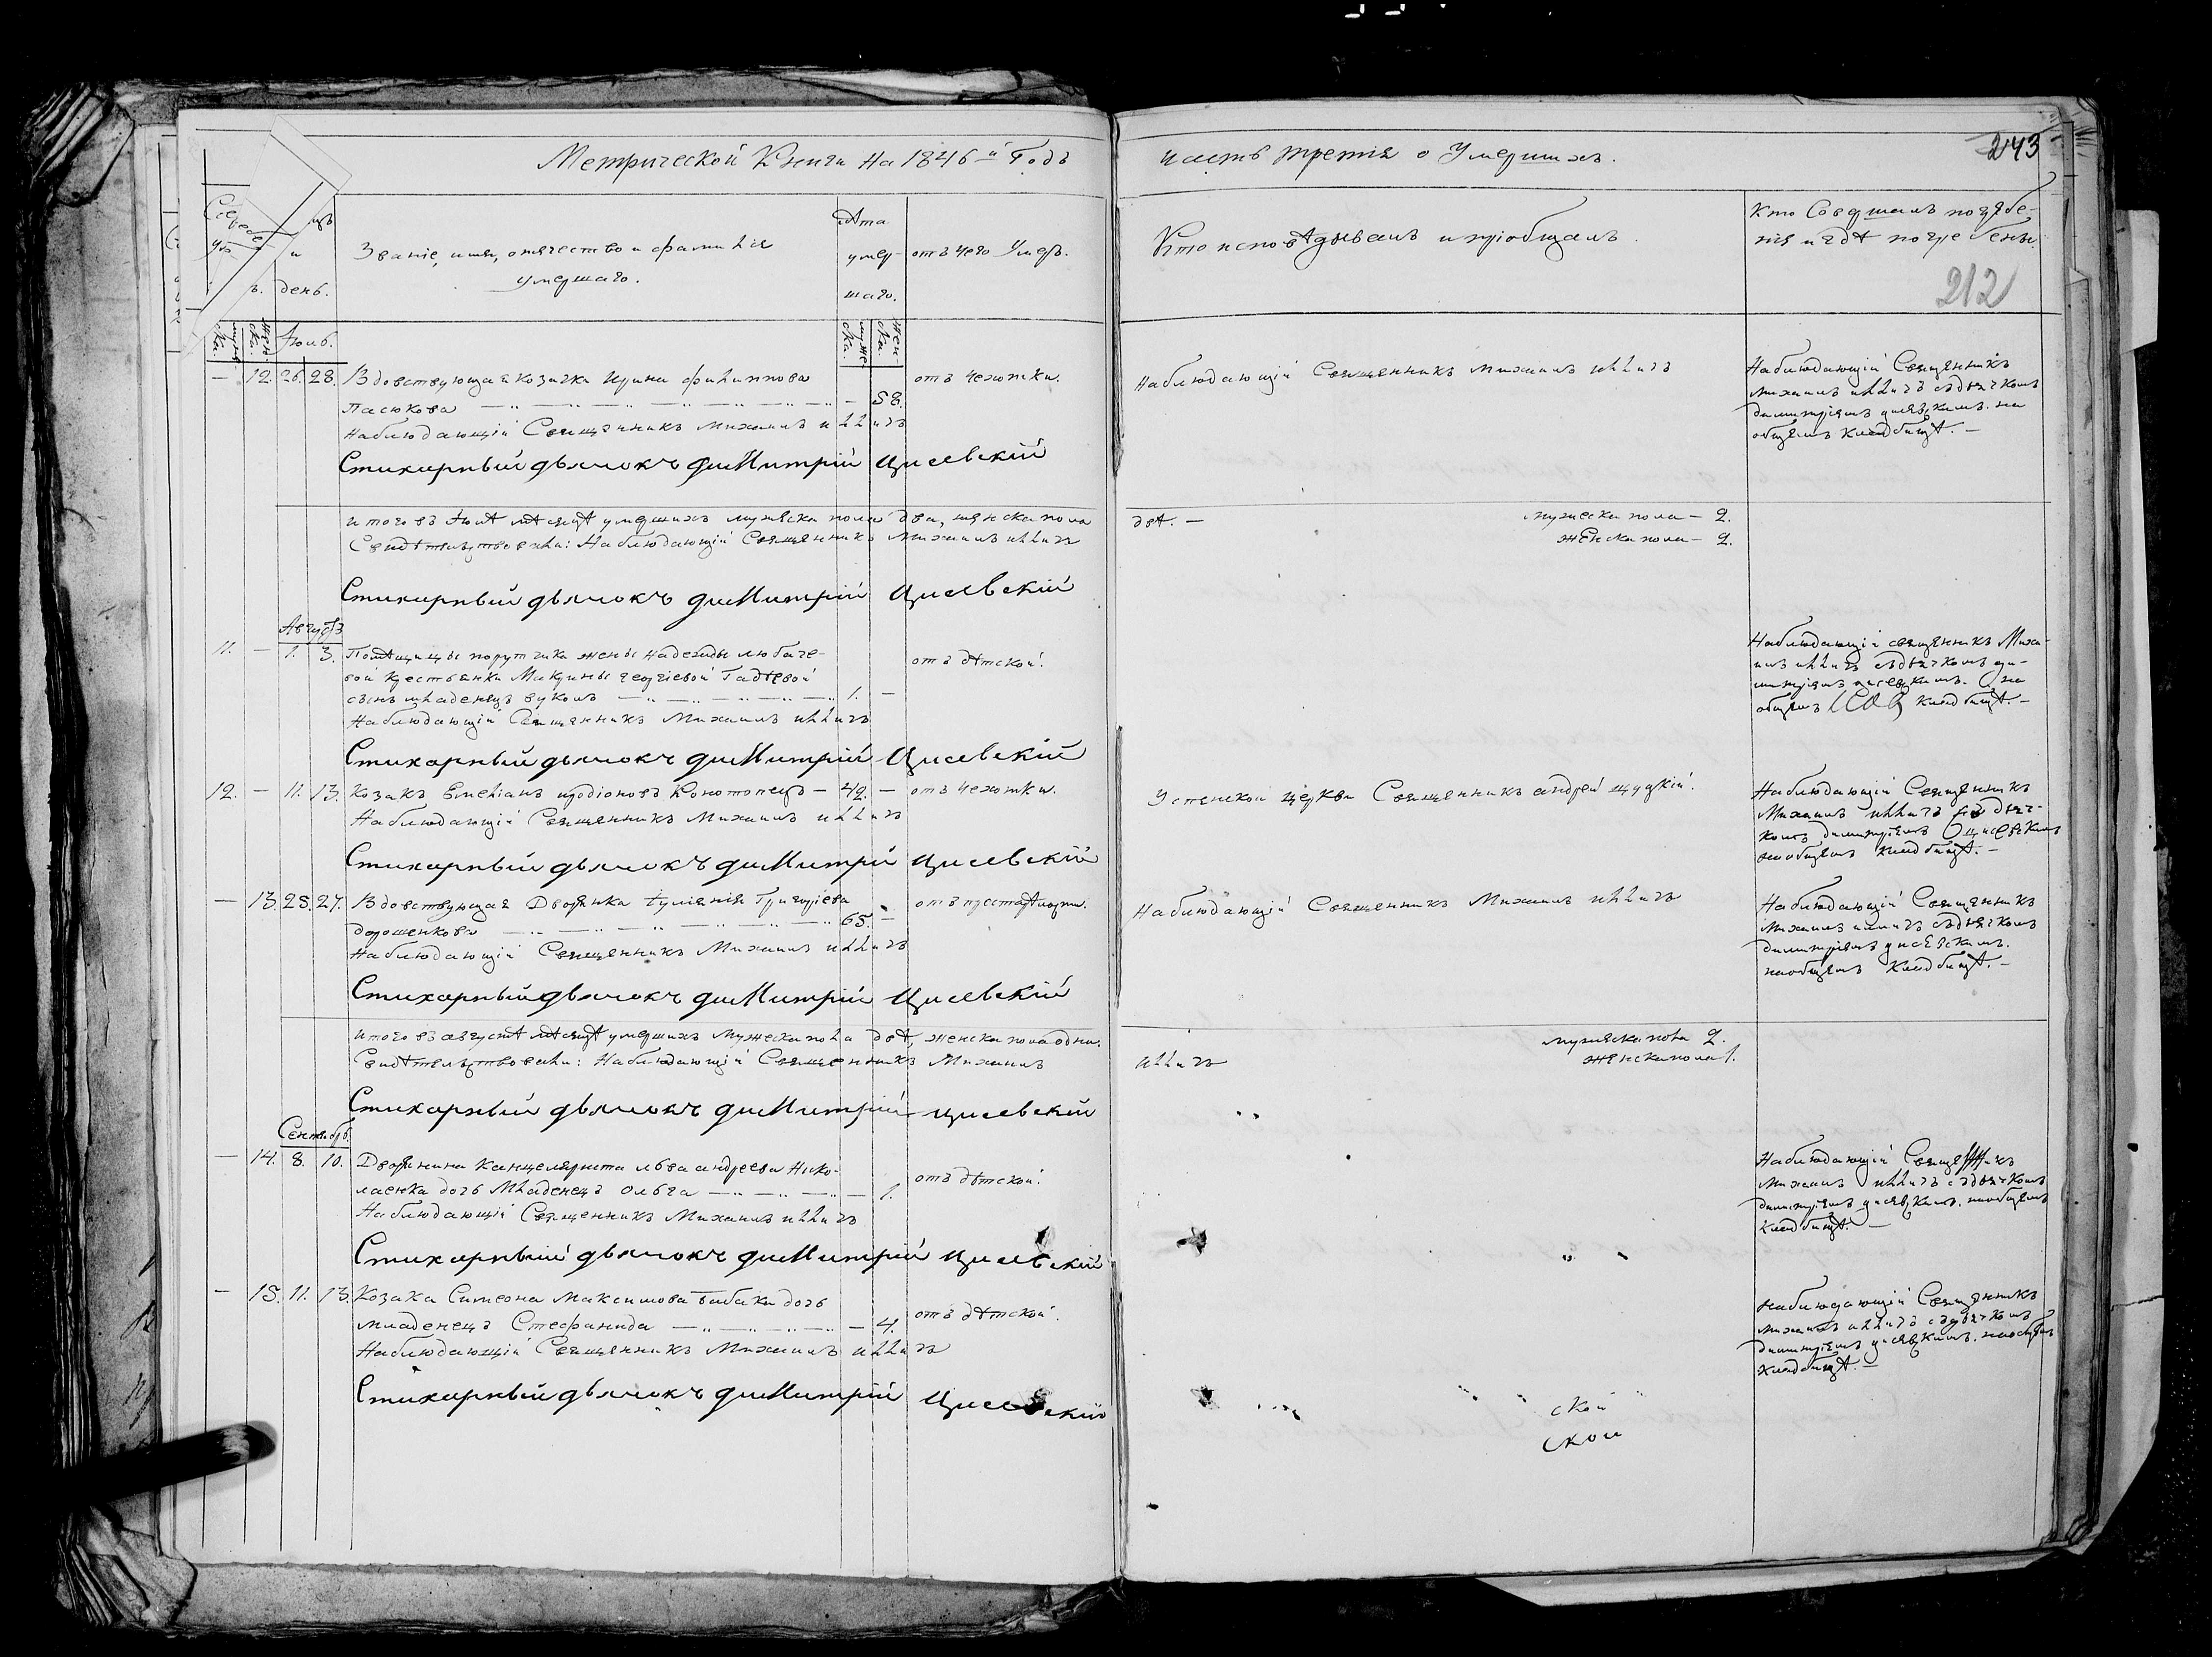 Метрической Книги на 1846й Годъ
часть третія о Умершихъ.
243
212
мужеска.
женска.
день.
Званіе, имя, отечество и фамилія
умершаго.
Лѣта
умер-
шаго.
отъ чего Умеръ.
Кто исповѣдывалъ и пріобщалъ.
Кто Совершалъ погребе-
нія и гдѣ погребены.
Іюль.
— 12. 26. 28. Вдовствующая козачка Ирина филиппова
Пасюкова — 58.
отъ чехотки.
Наблюдающій Священникъ Михаилъ Илличъ
Стихарный дьячокъ диМитрій Цисевскій
Наблюдающій Священникъ Михаилъ Илличъ
Наблюдающій Священникъ
Михаилъ Илличъ сдьячкомъ
димитріемъ цисевскимъ. на
общемъ кладбищѣ. —
итого въ Іюлѣ мѣсяцѣ умершихъ мужеска пола два, женска пола
двѣ. —
мужеска пола — 2.
женска пола — 2.
Свидѣтельствовали: Наблюдающій Священникъ Михаилъ Илличъ
Стихарный дьячокъ диМитрій Цисевскій
Августъ
11. — 1. 3. Помѣщицы порутчика жены Надежды любаче-
вой крестьянки Макрины георгіевой Гадѣевой
сынъ младенецъ вуколъ — 1. —
отъ дѣтской.
Наблюдающій Священникъ Михаилъ Илличъ
Стихарный дьячокъ диМитрій Цисевскій
Наблюдающій священникъ Миха-
илъ Илличъ сдьячкомъ ди-
митріемъ цисевскимъ. на
общемъ кладбищѣ. —
12. — 11. 13. Козакъ Емеліанъ иродіоновъ Конотопецъ — 42. — отъ чехотки.
Наблюдающій Священникъ Михаилъ Илличъ
Стихарный дьячокъ диМитрій Цисевскій
Успенской церкви Священникъ андрей
Наблюдающій Священникъ
Михаилъ Илличъ сдьяч-
комъ димитріемъ Цисевскимъ
наобщемъ кладбищѣ. —
— 13. 25. 27. Вдовствующая Дворянка Іуліянія Григоріева
дорошенкова — 65. —
Наблюдающій Священникъ Михаилъ Илличъ
Стихарный дьячокъ диМитрій Цисевскій
Наблюдающій Священникъ Михаилъ Илличъ
Наблюдающій Священникъ
Михаилъ Илличъ сдьячкомъ
димитріемъ цисевскимъ.
наобщемъ кладбищѣ. —
итого въ августѣ мѣсяцѣ умершихъ мужеска пола двѣ, женска пола одна.
мужеска пола 2.
женска пола 1.
Свидѣтельствовали: Наблюдающій Священникъ Михаилъ
Илличъ
Стихарный дьячокъ диМитрій Цисевскій
Сентябрь
— 14. 8. 10. Дворянина канцеляриста льва андреева Нико-
лаенка дочь Младенецъ Ольга — 1.
отъ дѣтской.
Наблюдающій Священникъ Михаилъ Илличъ
Стихарный дьячокъ диМитрій Цисевскій
Наблюдающій Священникъ
Михаилъ Илличъ сдьячкомъ
димитріемъ цисевскимъ. наобщемъ
кладбищѣ. —
— 15. 11. 13. Козака Симеона Максимова Бабака дочь
младенецъ Стефанида — 4.
отъ дѣтской.
Наблюдающій Священникъ Михаилъ Илличъ
Стихарный дьячокъ диМитрій Цисевскій
Наблюдающій Священникъ
Михаилъ Илличъ сдьячкомъ
димитріемъ цисевскимъ. наобщемъ
кладбищѣ. —
ской
ской